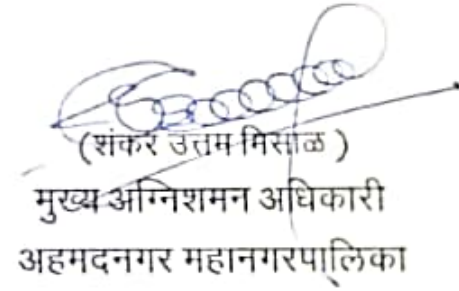 (शंकर उत्तम मिसाळ )
मुख्य अग्निशमन अधिकारी
अहमदनगर महानगरपालिका